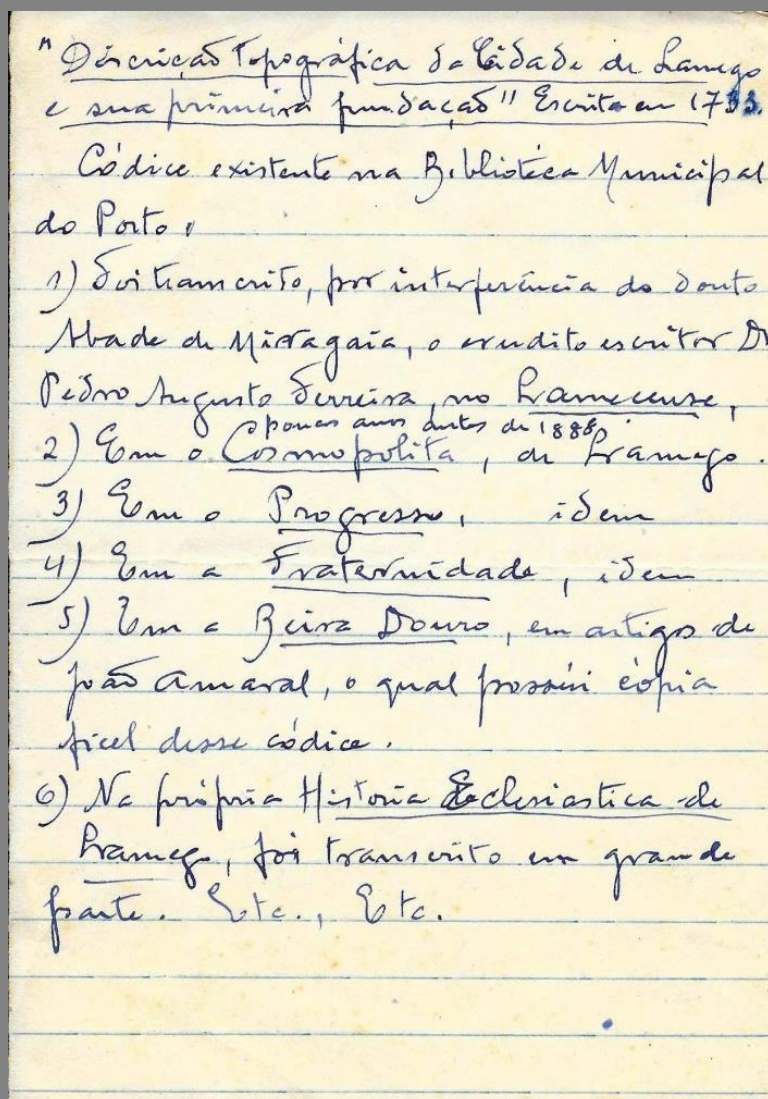 "Discrição Topográfica da Cidade de Lamego
e sua primeira fundação" Escrita em 1733.
Códice existente na Biblioteca Municipal
do Porto.
1) Foi transcrito, por interferência do douto
Abade de Miragaia, o erudito escritor Dr
Pedro Augusto Ferreira, no Lamecense,
poucos anos antes de 1888.
2) Em o Cosmopolita, de Lamego.
3) Em o Progresso, idem
4) Em a Fraternidade, idem
5) Em a Beira Douro, em artigos de
João Amaral, o qual possúi cópia
fiel desse códice.
6) Na própria Historia Eclesiastica de
Lamego, foi transcrito em grande
parte. Etc., Etc.